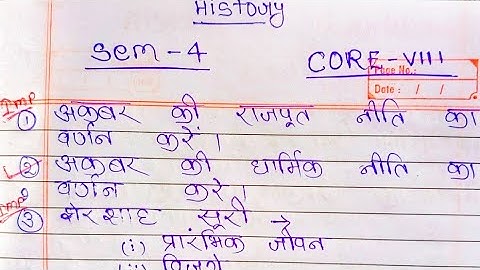 History
Sem - 4 CORE - VIII
Page No.:
Date: / /
Imp ① अकबर की राजपूत नीति का
वर्णन करें।
② अकबर की धार्मिक नीति का
वर्णन करें।
Imp ③ शेरशाह सूरी →
(i) प्रारंभिक जीवन